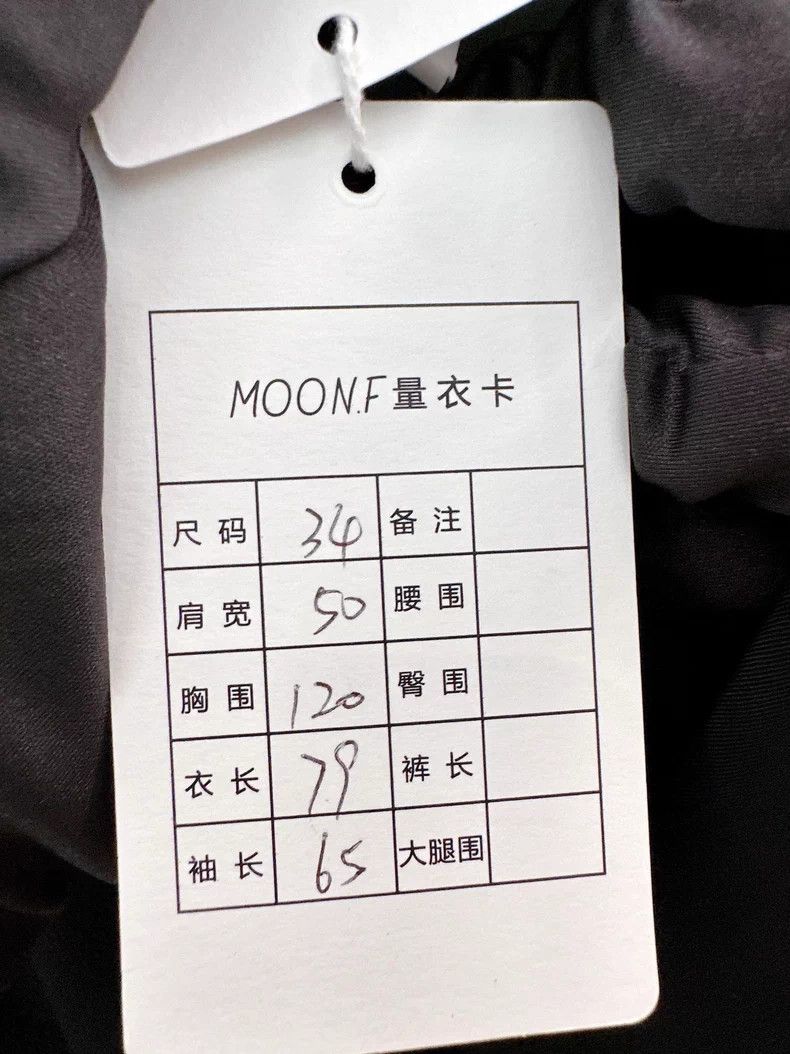 MOON.F 量衣卡
尺码 34 备注
肩宽 50 腰围
胸围 120 臀围
衣长 79 裤长
袖长 65 大腿围